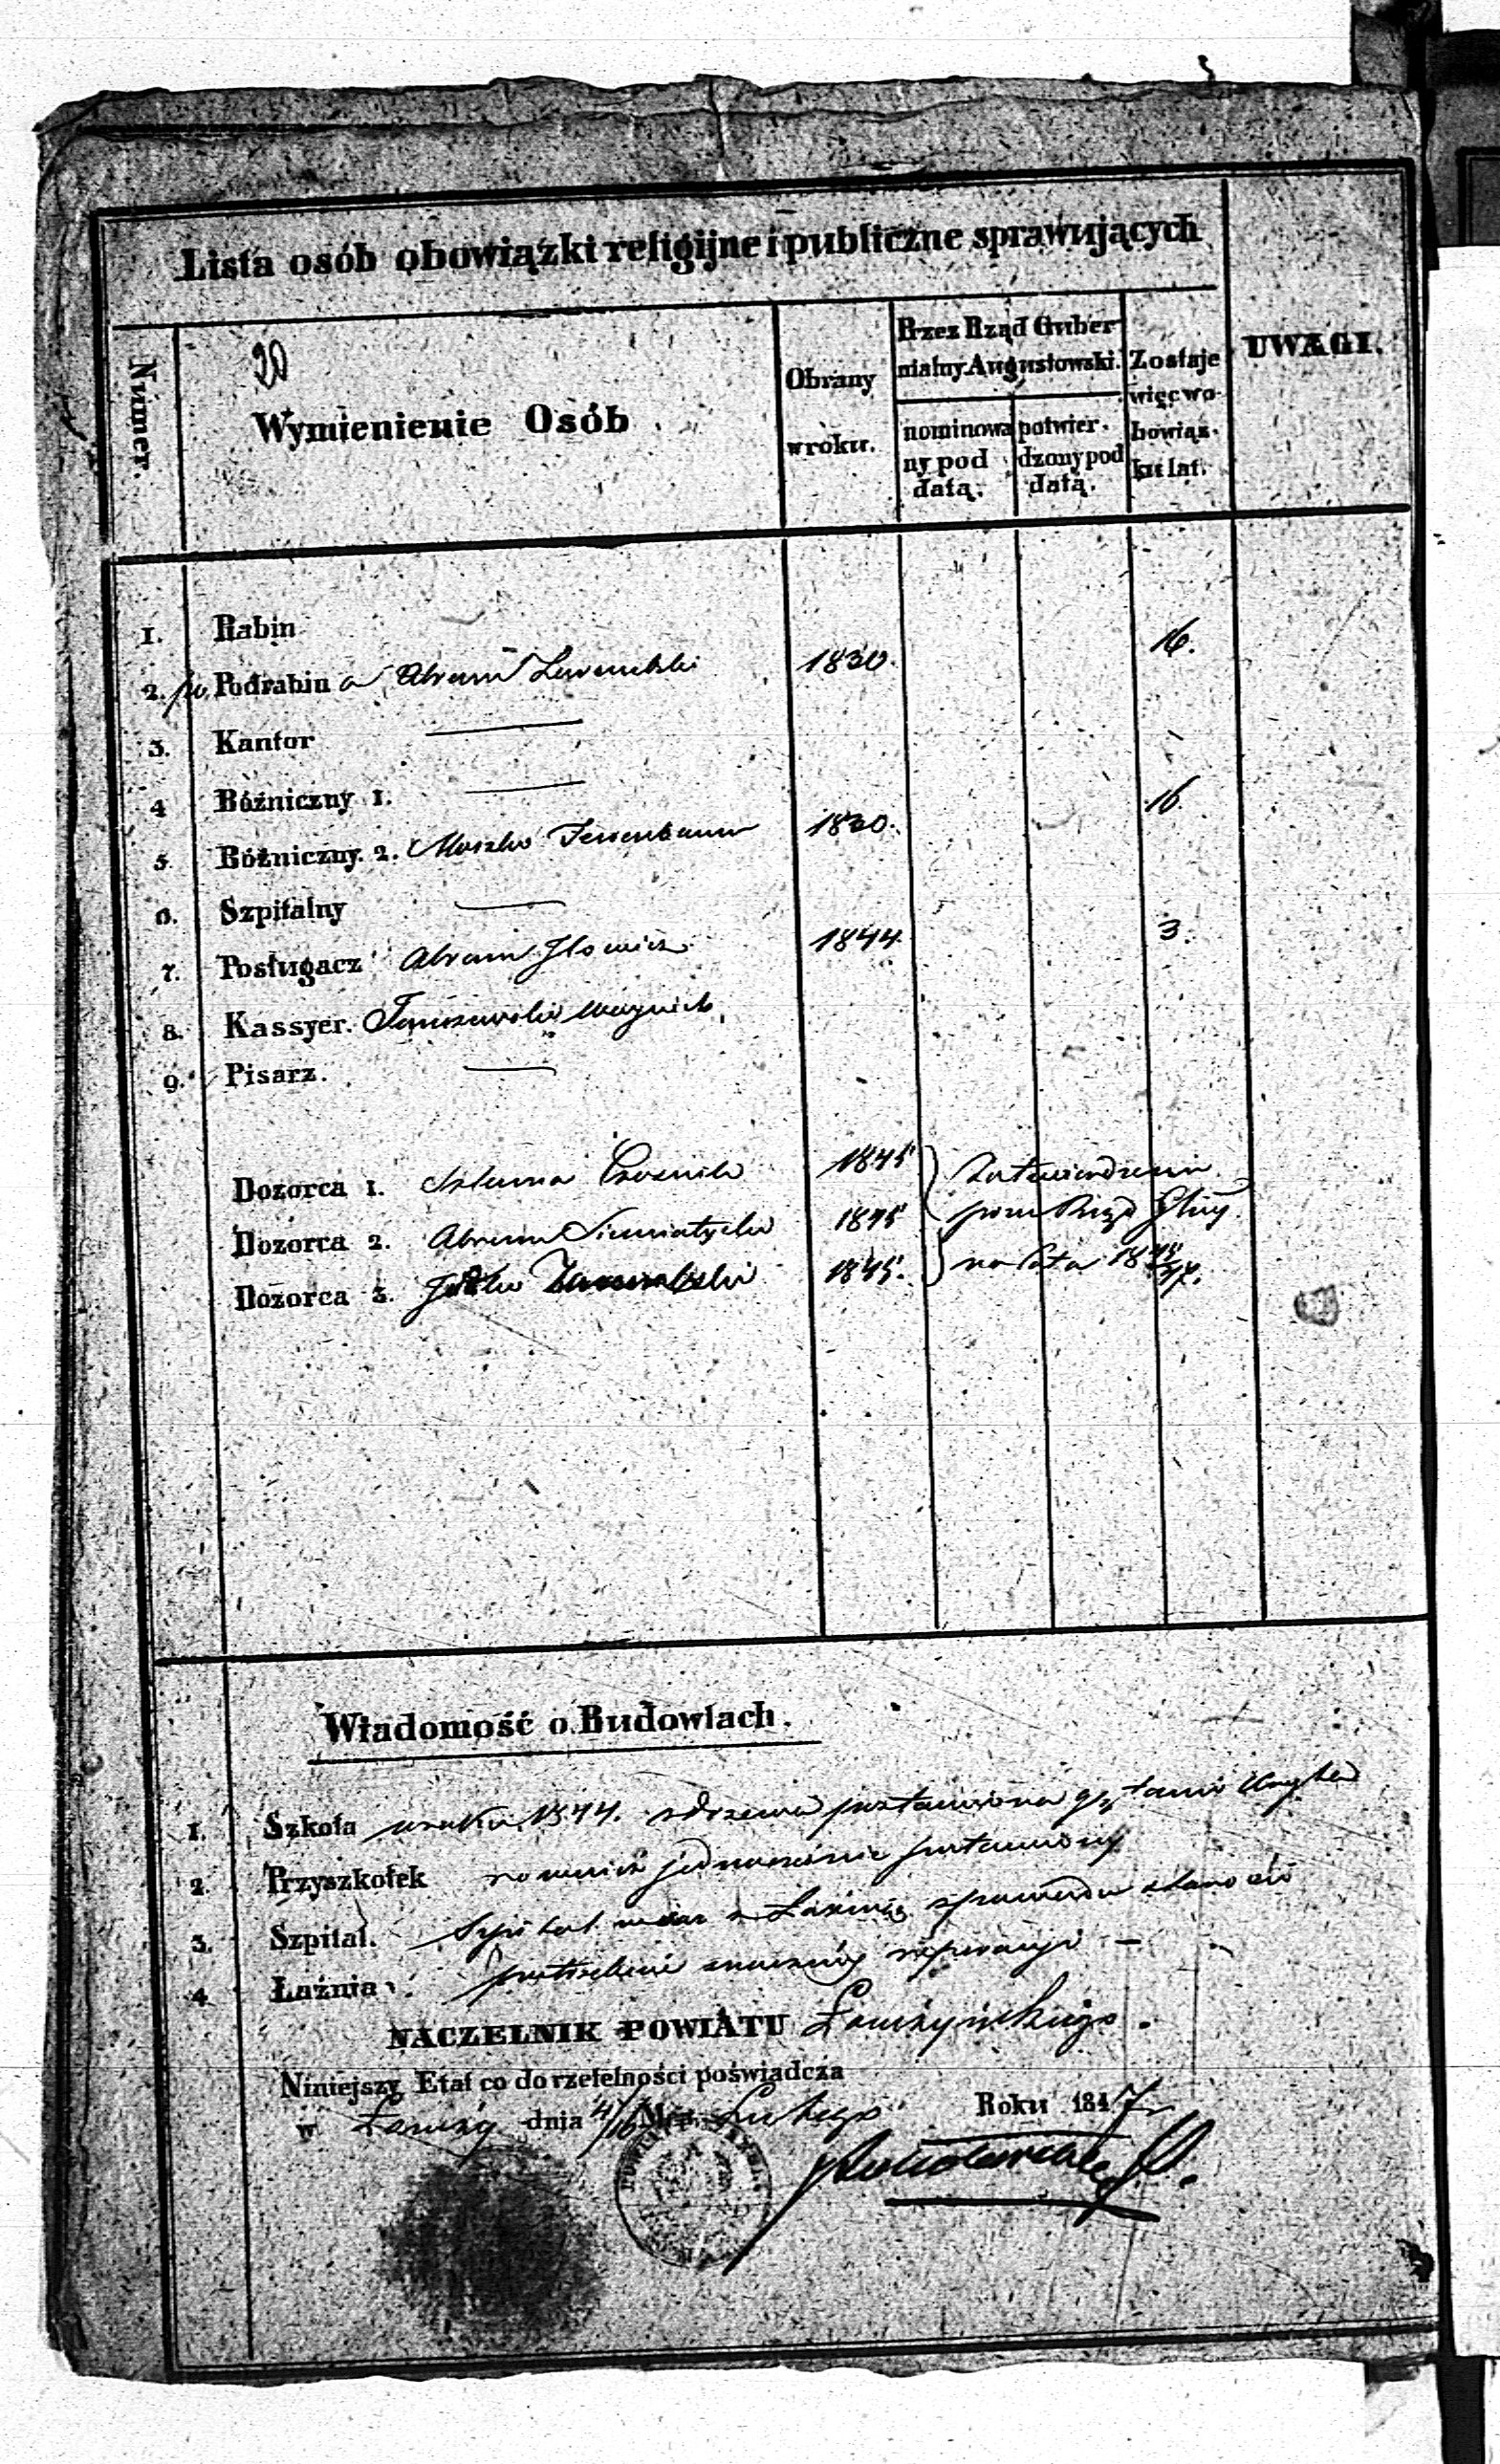 Lista osób obowiązki religijne i publiczne sprawujących
20
Numer.
Wymienienie Osób.
Obrany w roku.
Przez Rząd Gubernialny Augustowski.
nominowany pod datą.
potwierdzony pod datą.
Zostaje więc w obowiązku lat.
UWAGI.
1. Rabin
2. Podrabin Abram 1830. 16.
3. Kantor —
4 Bóżniczny 1. —
5. Bóżniczny. 2. Moszko 1830. 16.
6. Szpitalny —
7. Posługacz Abram 1844. 3.
8. Kassyer.
9. Pisarz. —
Dozorca 1. 1845 Zatwierdzeni
Dozorca 2. Abram Siemiatycki 1845 przez Rząd
Dozorca 3. 1845. na lata 1845/47.
Wiadomość o Budowlach.
1. Szkoła w roku 1844. z drzewa postawiona
2. Przyszkołek również jednocześnie postawiony
3. Szpital. Szpital wraz z Łaźnią
4. Łaźnia potrzebuje znacznej reperacyi —
NACZELNIK POWIATU Łomżyńskiego.
Niniejszy Etat co do rzetelności poświadcza
w Łomży dnia 4/16 Mca Lutego Roku 1847